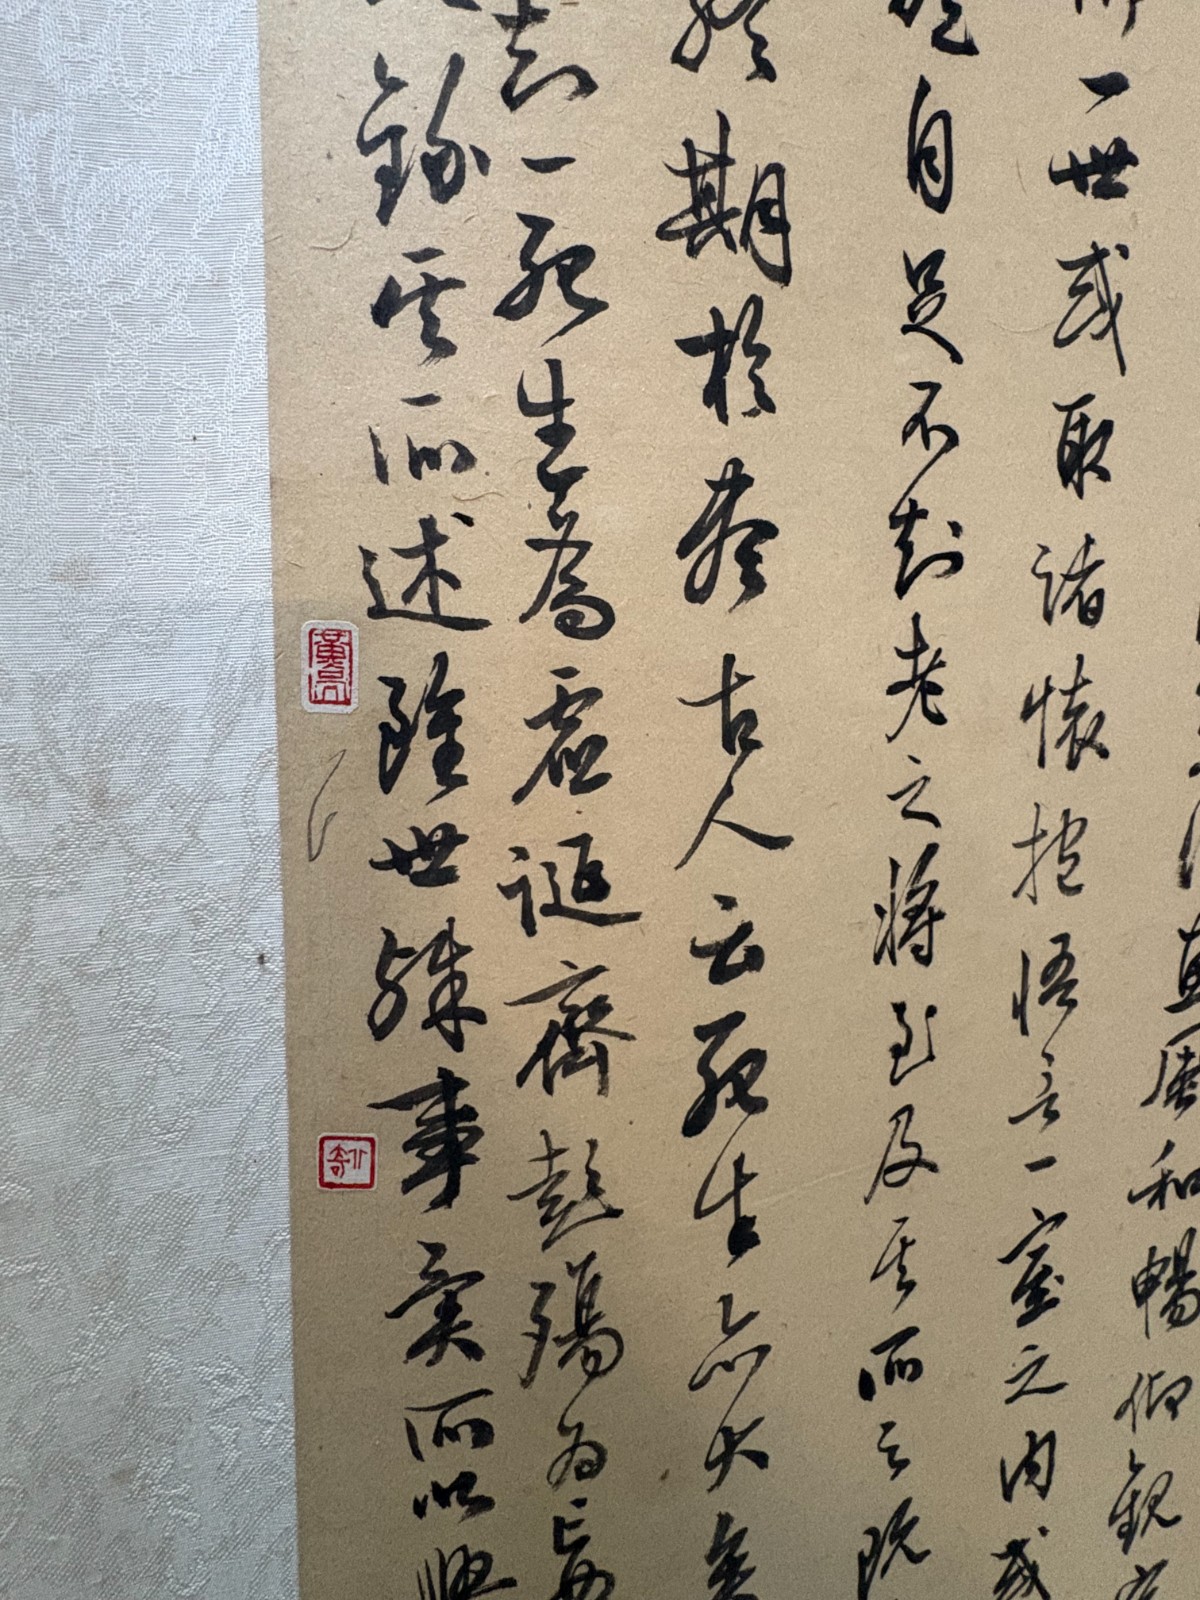 惠風和暢仰觀
一世或取諸懷抱悟言一室之內或
自足不知老之將至及其所之既
終期於盡古人云死生亦大矣
知一死生為虛誕齊彭殤為妄
錄其所述雖世殊事異所以興